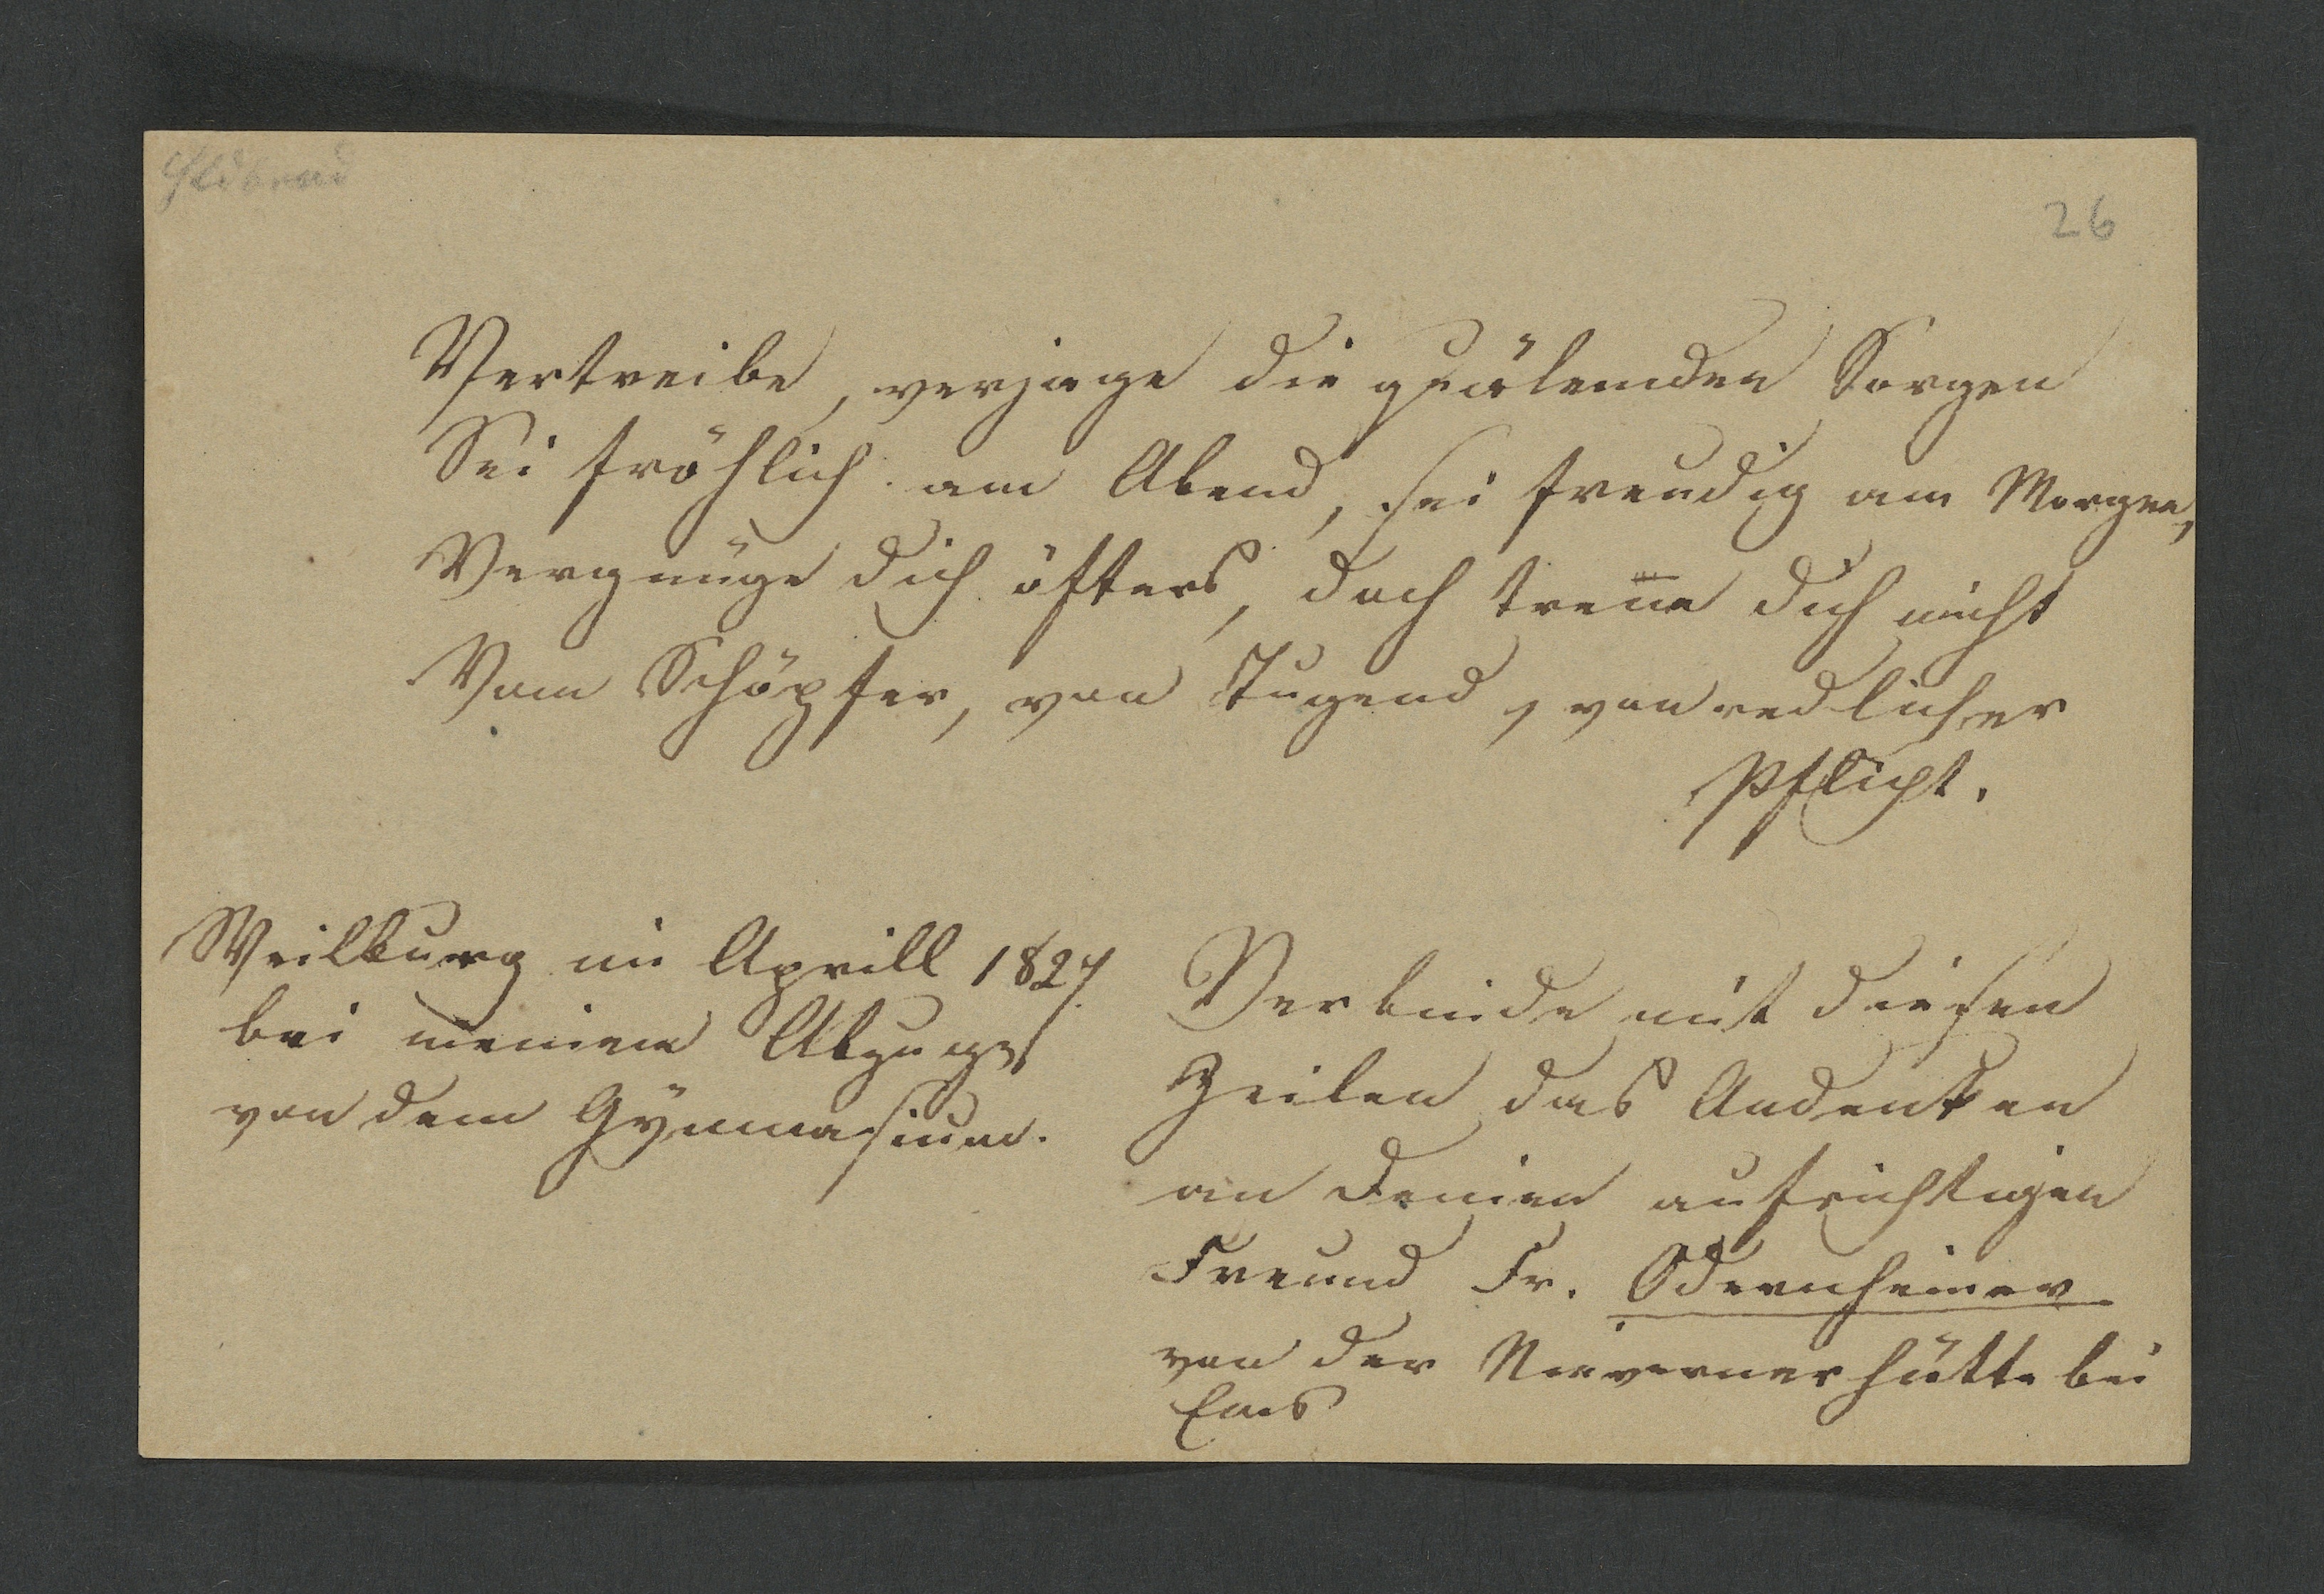 26
Vertreibe, verjage die quälenden Sorgen
Sei fröhlich am Abend, sei freudig am Morgen,
Vergnüge dich öfters, doch treñe dich nicht
Vom Schöpfer, von Tugend, von redlicher
Pflicht.
Weilburg im Aprill 1827
bei meinem Abzuge
von dem Gÿmnasium.
Verbinde mit diesen
Zeilen das Andenken
an Deinen aufrichtigen
Freund Fr. Odernheimer
von der Nieverner hütte bei
Ems